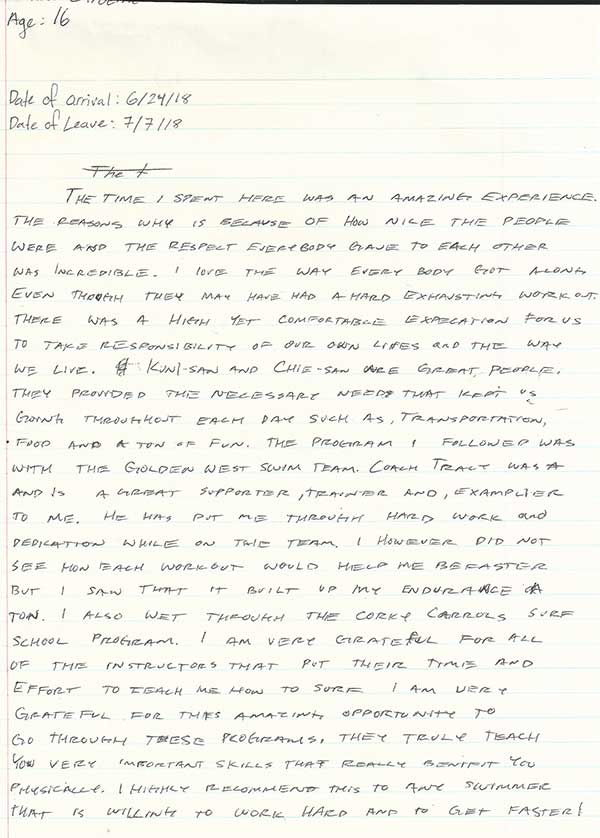 Age: 16
Date of arrival: 6/24/18
Date of Leave: 7/7/18
The t
THE TIME I SPENT HERE WAS AN AMAZING EXPERIENCE.
THE REASONS WHY IS BECAUSE OF HOW NICE THE PEOPLE
WERE AND THE RESPECT EVERYBODY GAVE TO EACH OTHER
WAS INCREDIBLE. I LOVE THE WAY EVERY BODY GOT ALONG
EVEN THOUGH THEY MAY HAVE HAD A HARD EXHAUSTING WORK OUT.
THERE WAS A HIGH YET COMFORTABLE EXPECATION FOR US
TO TAKE RESPONSIBILITY OF OUR OWN LIFES and THE WAY
WE LIVE. KUNI-SAN AND CHIE-SAN ARE GREAT PEOPLE.
THEY PROVIDED THE NECESSARY NEEDS THAT KEPT US
GOING THROUGHOUT EACH DAY SUCH AS, TRANSPORTATION,
FOOD AND A TON OF FUN. THE PROGRAM I FOLLOWED WAS
WITH THE GOLDEN WEST SWIM TEAM. COACH TRACY WAS A
AND IS A GREAT SUPPORTER, TRAINER AND, EXAMPLIER
TO ME. HE HAS PUT ME THROUGH HARD WORK and
DEDICATION WHILE ON THE TEAM. I HOWEVER DID NOT
SEE HOW EACH WORKOUT WOULD HELP ME BE FASTER
BUT I SAW THAT IT BUILT UP MY ENDURANCE A
TON. I ALSO WET THROUGH THE CORKY CARROLS SURF
SCHOOL PROGRAM. I AM VERY GRATEFUL FOR ALL
OF THE INSTRUCTORS THAT PUT THEIR TIME AND
EFFORT TO TEACH ME HOW TO SURF. I AM VERY
GRATEFUL FOR THIS AMAZING OPPORTUNITY TO
GO THROUGH THESE PROGRAMS, THEY TRULY TEACH
YOU VERY IMPORTANT SKILLS THAT REALLY BENIFIT YOU
PHYSICALLY. I HIGHLY RECOMMEND THIS TO ANY SWIMMER
THAT IS WILLING TO WORK HARD AND TO GET FASTER!